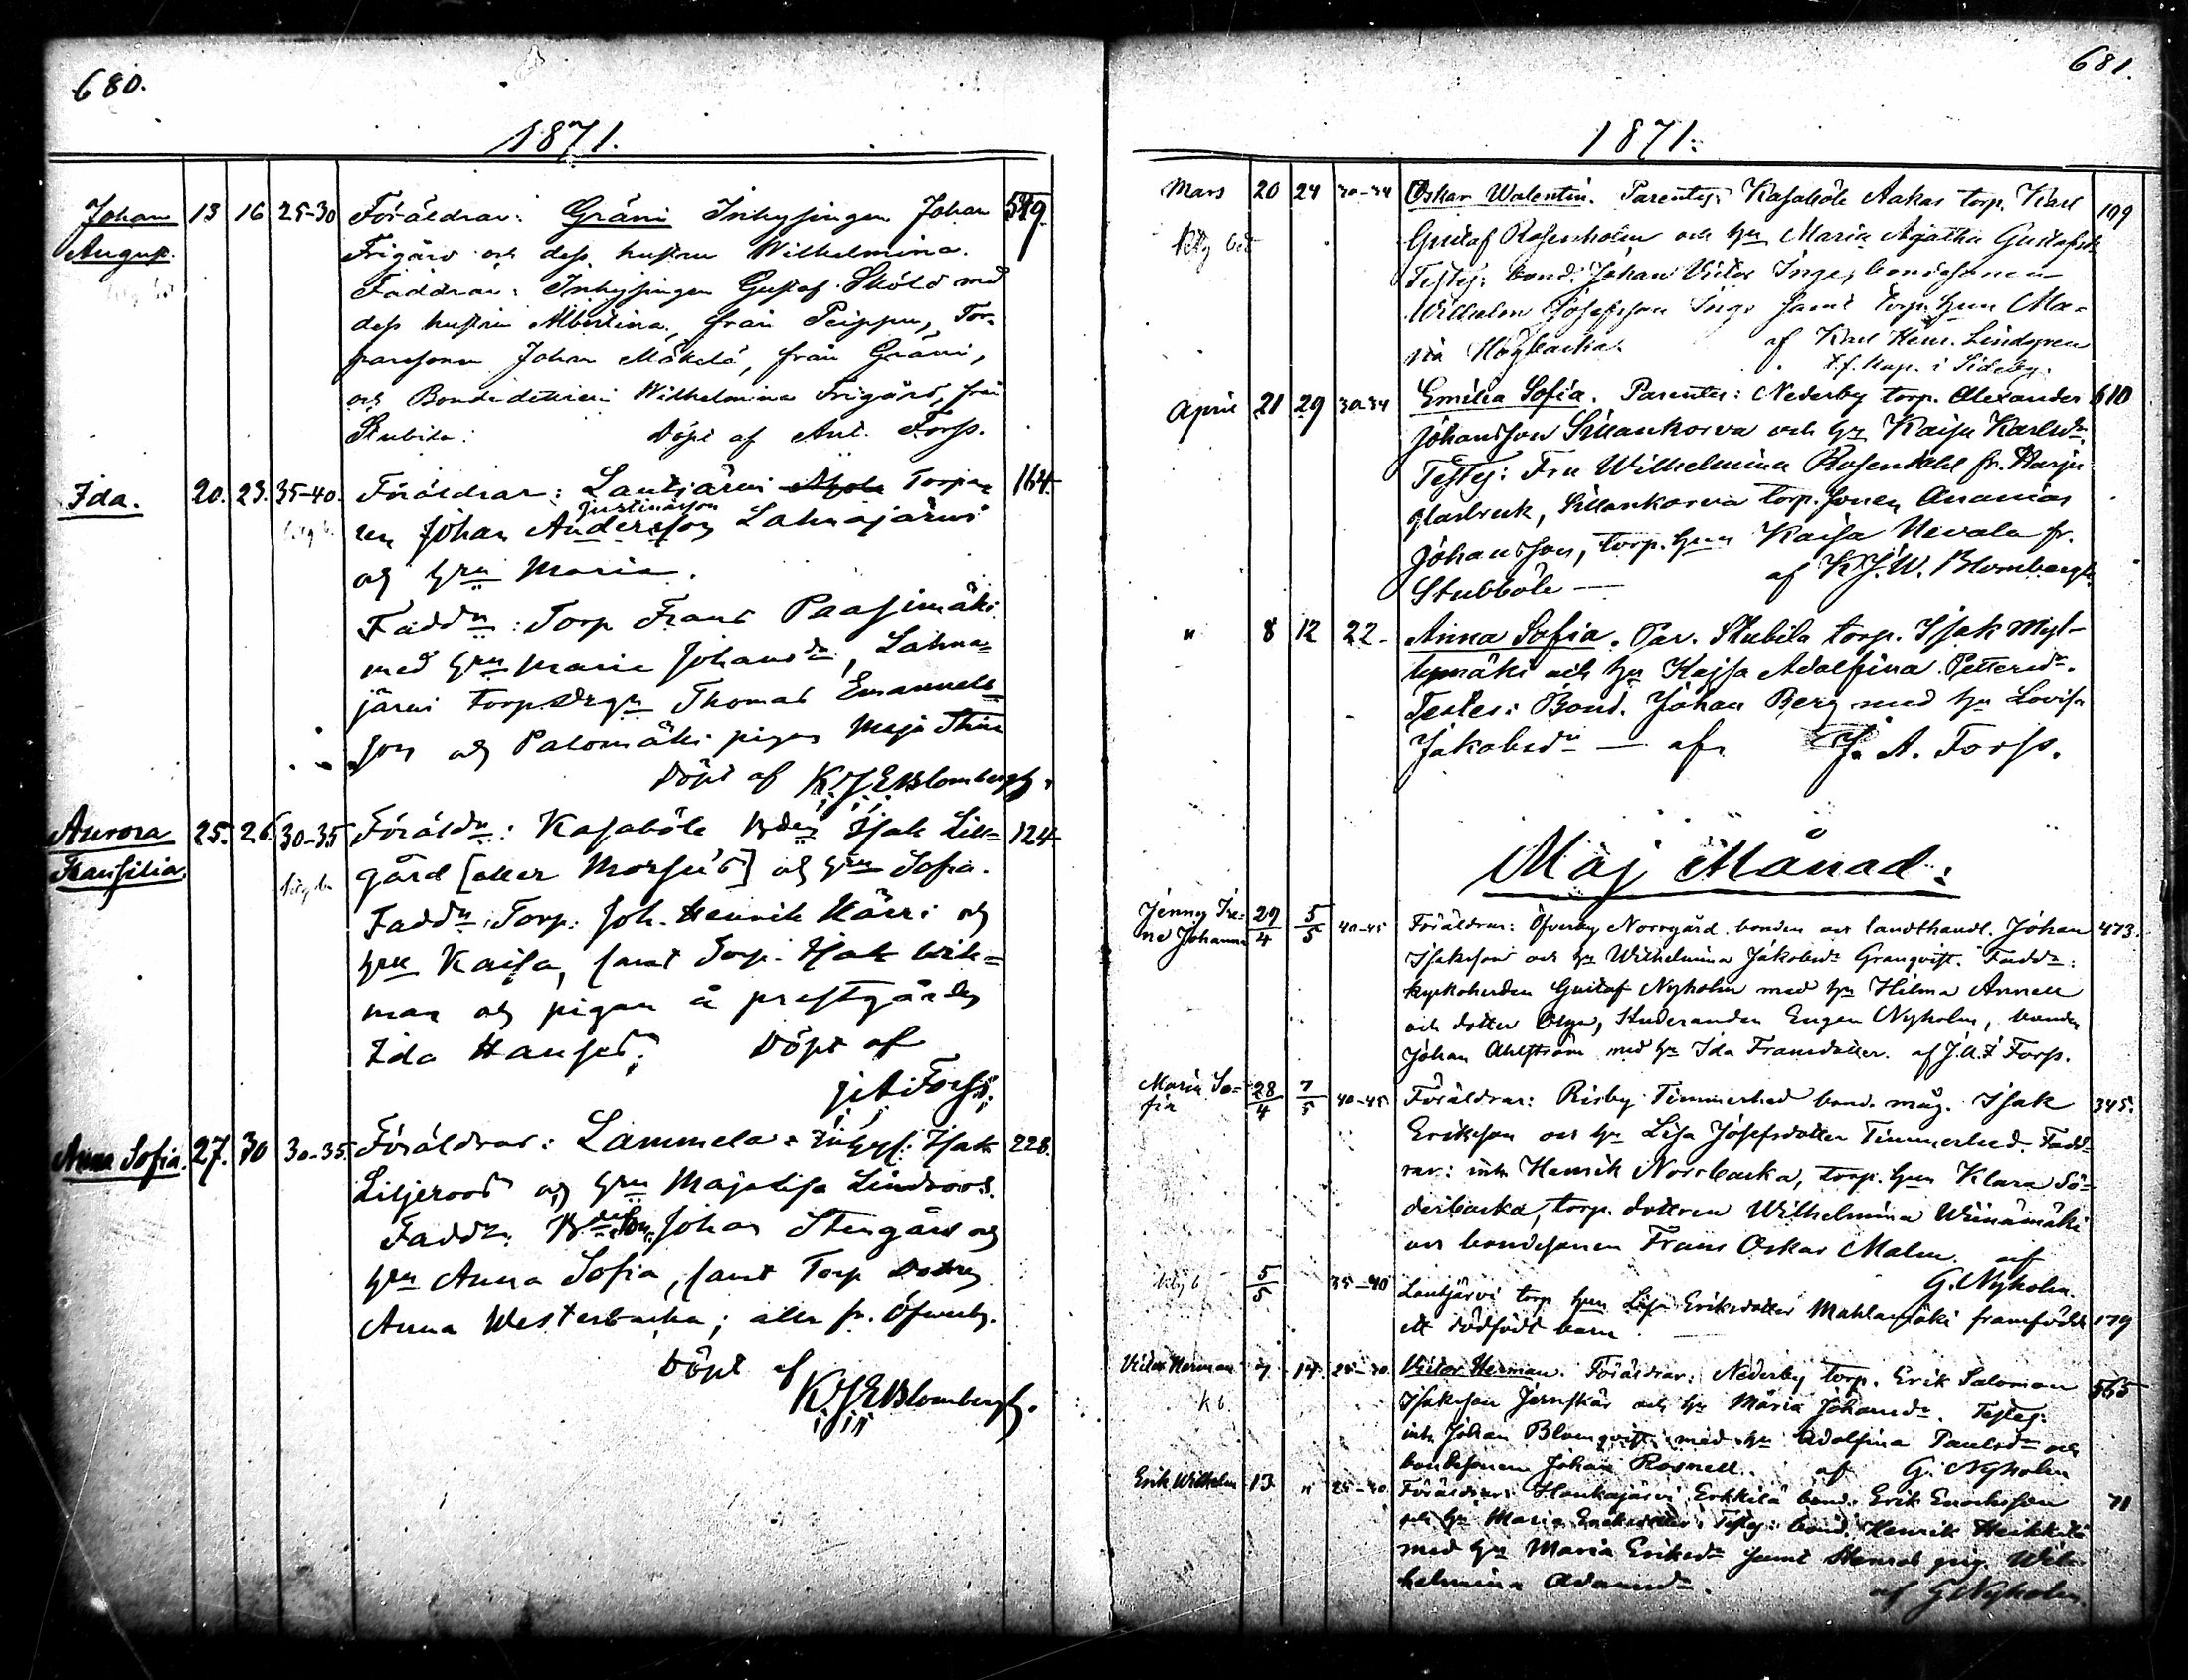 680.
1871.
Johan August. 13 16 25-30 Föräldrar: Gräni Inhysingen Johan 519.
Frigård och dess hustru Wilhelmina.
Faddrar: Inhysingen Gustaf Sköld med
dess hustru Albertina, från Peippu, Tor-
paresonen Johan Mäkelä, från Gräni,
och Bondedottren Wilhelmina Frigård, från
Stubila: Döpt af Ant. Forss.
Ida. 20. 23. 35-40. Föräldrar: Lautjärvi Torpa- 164.
ren Johan Andersson Lahnajärvi
Justinasson
och hru Maria.
Faddr: Torp Frans Paasimäki
med hru Maria Johansdr, Lahna-
järvi torp.drgn Thomas Emanuels-
son och Palomäki pigan Maja Stina
Döpt af K J E Blombergh.
Aurora Fransilia. 25. 26. 30-35 Föräldr: Kasaböle Bden Isak Lill- 124
gård [eller Morfus] och hru Sofia.
Faddr: Torp. Joh. Henrik Härri och
hru Kaisa, samt Torp. Isak Wik-
man och pigan å prestgården
Ida Hansdr. Döpt af
J A Forss.
Anna Sofia. 27. 30 30-35. Föräldrar: Lammela Inhys: Isak 228.
Liljeroos och hru Majalisa Lindroos.
Faddr: Bdeson Johan Stengård och
hru Anna Sofia, samt Torp Dottren
Anna Westerbacka; alla fr. Öfverby.
Döpt af
K J E Blombergh.
681.
1871.
Mars 20 24 30-34 Oskar Walentin. Parentes: Kasaböle Aakas torp. Karl 199
Gustaf Rosenholm och hu Maria Agatha Gustafsdr
Testes: bond. Johan Victor Inge, bondesonen
Wilhelm Josefsson Inge samt torp. hun Ma-
ria Högbacka. af Karl Henr. Lindgren
t.f. kap. i Sideby.
April 21 29 30-34 Emilia Sofia. Parentes: Nederby torp. Alexander 610
Johansson Sillankorva och hu Kaisa Karlsdr.
Testes: Fru Wilhelmina Rosendahl fr. Harju
glasbruk, Sillankorva torp. sonen Ananias
Johansson, torp. hun Kaisa Nevala fr.
Stubböle — af K J. W. Blombergh.
" 8 12 22- Anna Sofia. Par. Stubila torp. Isak Myl-
lymäki och hu Kajsa Adolfina Pettersdr.
Testes: Bond. Johan Berg med hu Lovisa
Jakobsdr — af J. A. Forss.
Maj Månad:
Jenny Ire- ne Johanna 29/4 5/5 40-45 Föräldrar: Öfverby Norrgård bonden och landthandl. Johan 473.
Isaksson och hu Wilhelmina Jakobsdr Granqvist. Faddr:
kyrkoherden Gustaf Nyholm med hu Hilma Annell
och dotter Olga, Studeranden Eugen Nyholm, bonden
Johan Ahlström med hu Ida Fransdotter. af J. A. F Forss.
Maria So- fia 28/4 7/5 40-45 Föräldrar: Risby Timmerhed bond. måg. Isak 345.
Eriksson och hu Lisa Josefsdotter Timmerhed. Fadd-
rar: inh Henrik Norrbacka, torp. hun Klara Sö-
derbacka, torp. dottren Wilhelmina Wiinamäki
och bondesonen Frans Oskar Malm af
G. Nyholm.
5/5 35-40 Lautjärvi torp hun Lisa Eriksdotter Mahlamäki framfödde 179
ett dödfödt barn
Victor Herman 7. 14. 25-30. Victor Herman. Föräldrar: Nederby torp. Erik Salomon 565
k b Isaksson Jernskär och hu Maria Johansdr. Testes:
inh Johan Blomqvist med hu Adolfina Paulsdr och
bondesonen Johan Rosnell. af G. Nyholm
Erik Wilhelm 13. " 25-30. Föräldrar: Honkajärvi Erkkilä bond. Erik Enocksson 71
och hu Maria Eriksdotter. Testes: bond. Henrik Heikkilä
med hu Maria Eriksdr samt pig. Wil-
helmina Adamsdr.
af G Nyholm.